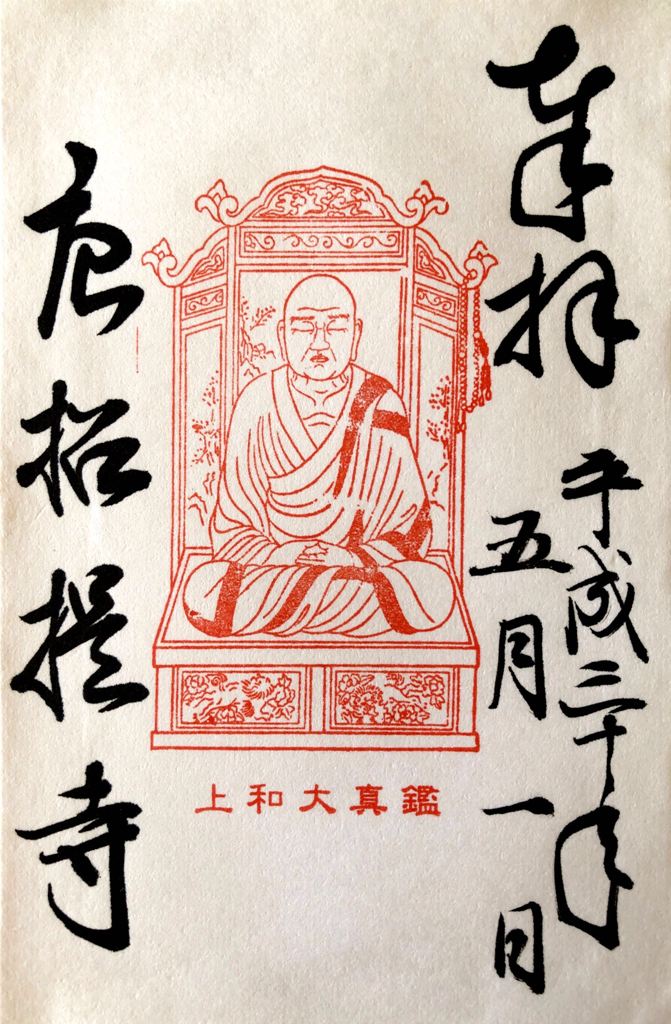 奉拝
平成三十年
五月一日
鑑真大和上
唐招提寺